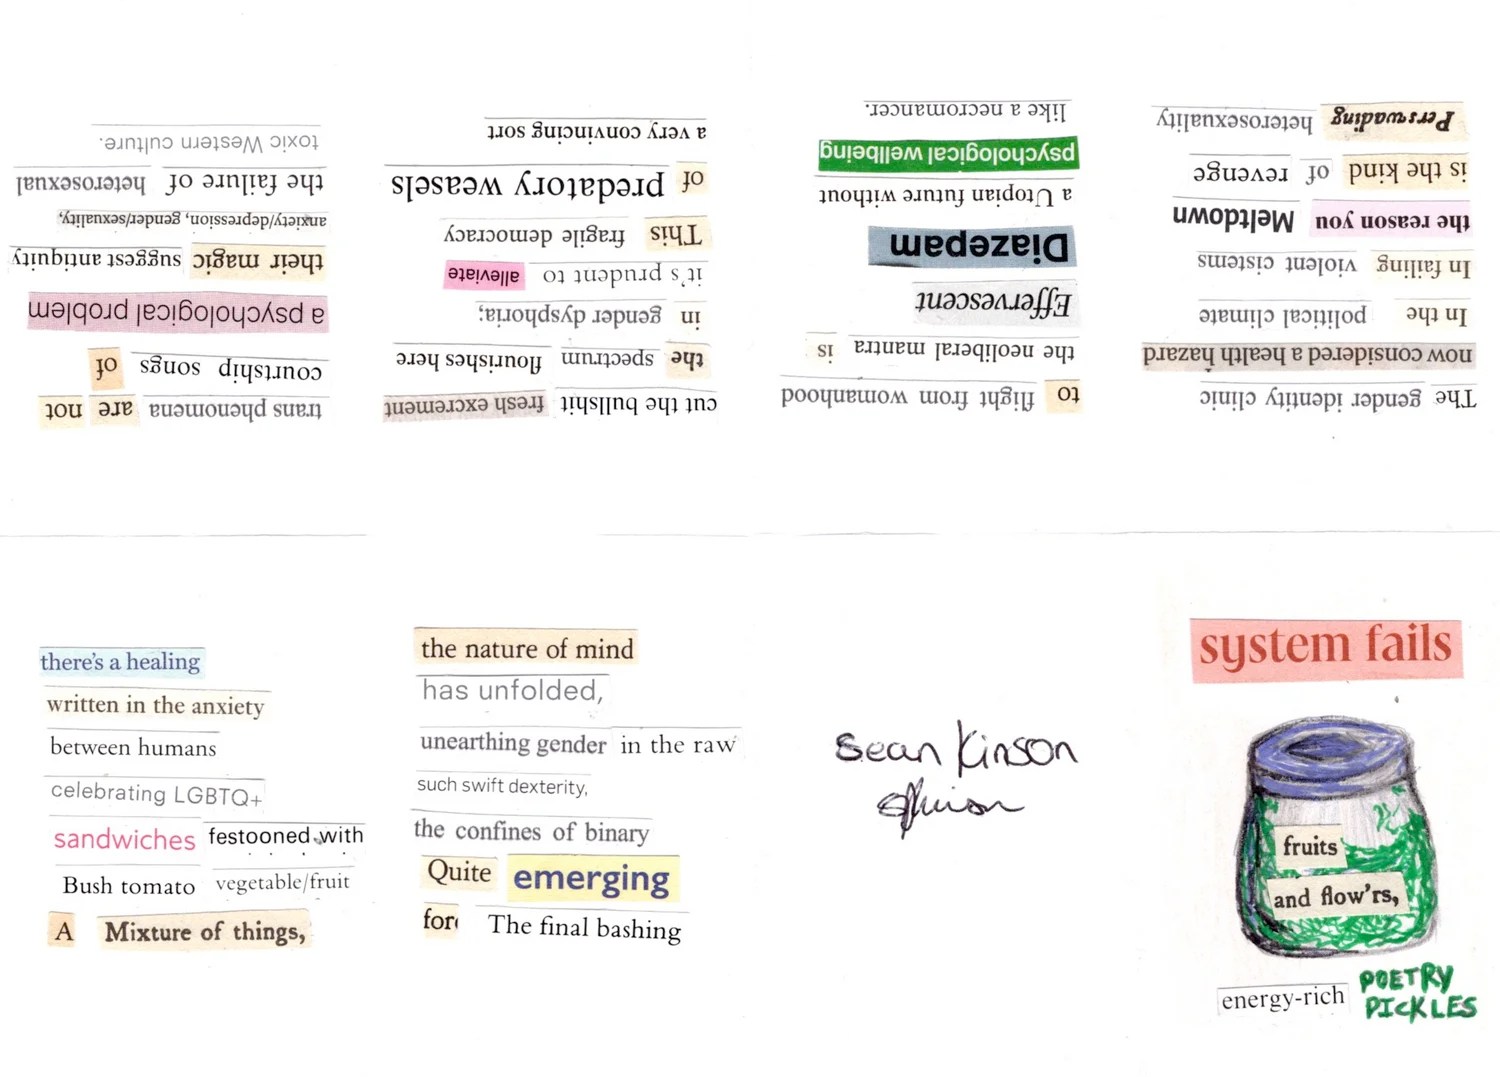 system fails
fruits
and flow'rs,
energy-rich POETRY
PICKLES
The gender identity clinic
now considered a health hazard
In the political climate
In failing violent cistems
the reason you Meltdown
is the kind of revenge
Perswading heterosexuality
to flight from womanhood
the neoliberal mantra is
Effervescent
Diazepam
a Utopian future without
psychological wellbeing
like a necromancer.
cut the bullshit fresh excrement
the spectrum flourishes here
in gender dysphoria;
it's prudent to alleviate
This fragile democracy
of predatory weasels
a very convincing sort
trans phenomena are not
courtship songs of
a psychological problem
their magic suggest antiquity
anxiety/depression, gender/sexuality,
the failure of heterosexual
toxic Western culture.
there's a healing
written in the anxiety
between humans
celebrating LGBTQ+
sandwiches festooned with
Bush tomato vegetable/fruit
A Mixture of things,
the nature of mind
has unfolded,
unearthing gender in the raw
such swift dexterity,
the confines of binary
Quite emerging
for The final bashing
Sean Kinson